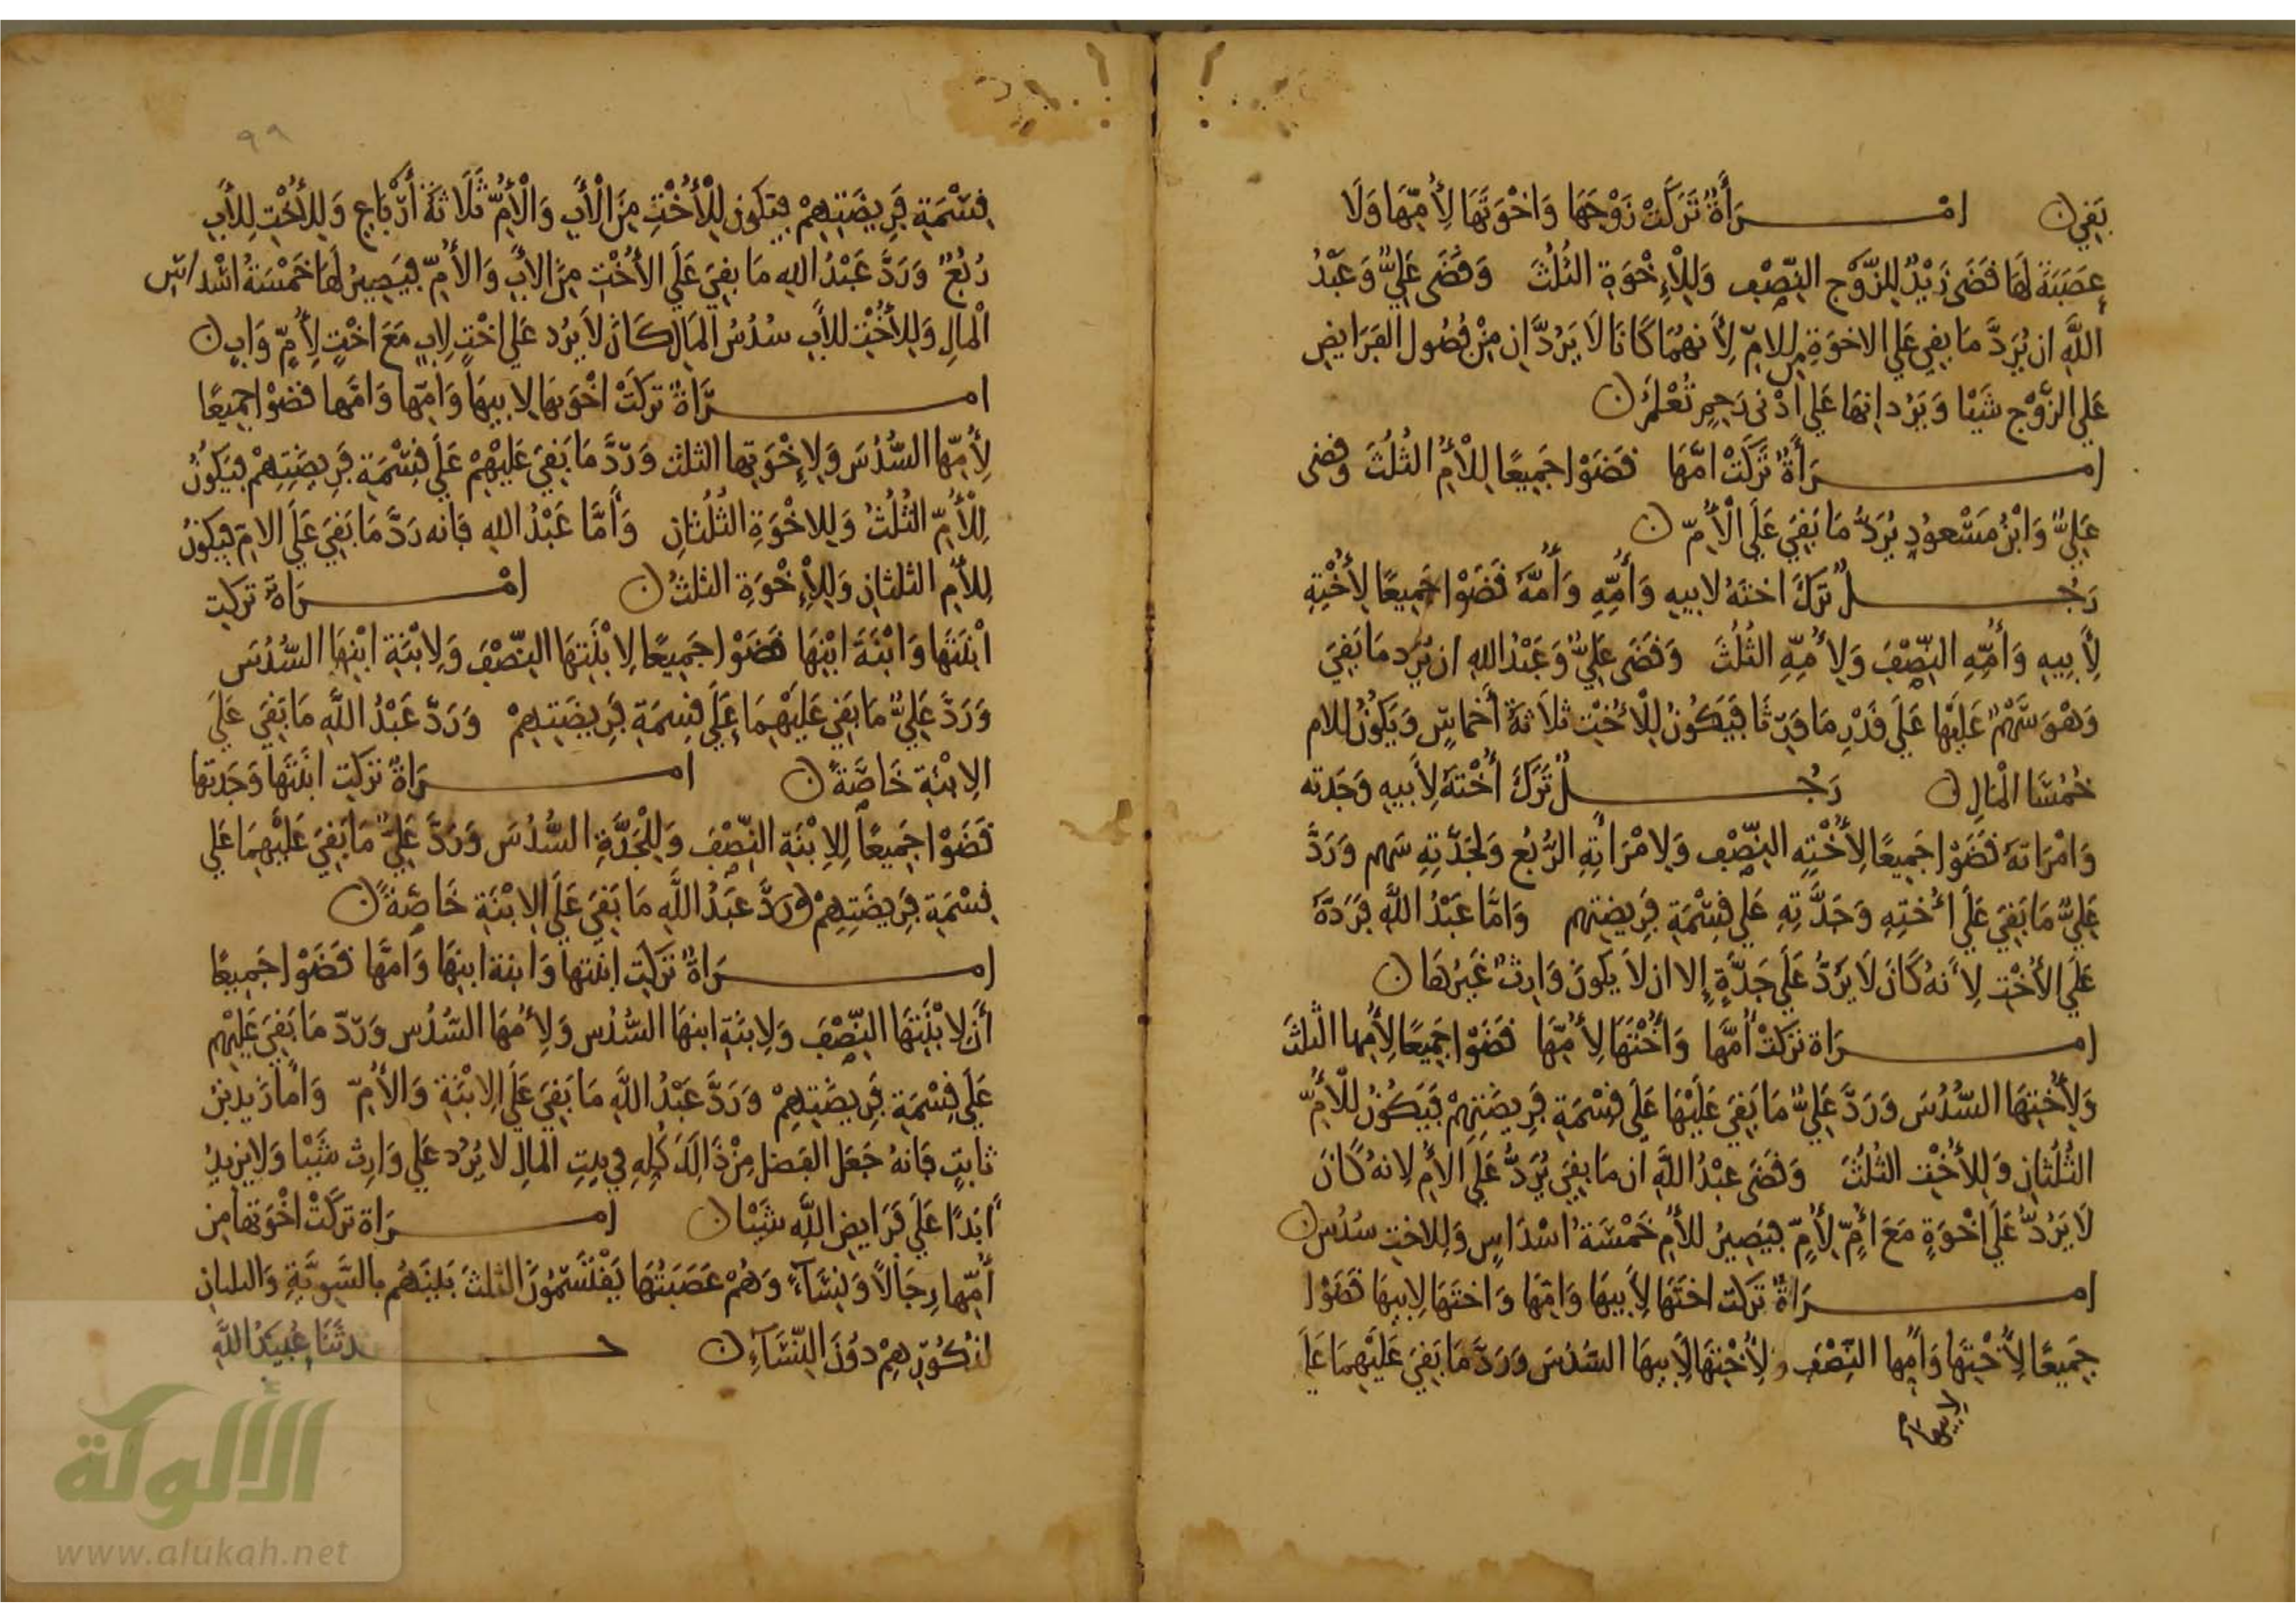 بَقِيَ ن امْرَأَةٌ تَرَكَتْ زَوْجَهَا وَاخْوَتَهَا لِأُمِّهَا وَلَا
عَصَبَةَ لَهَا فَقَضَى زَيْدٌ لِلزَّوْجِ النِّصْفَ وَلِلْإِخْوَةِ الثُلُثَ وَقَضَى عَلِيٌّ وَعَبْدُ
اللَّهِ ان يُرَدَّ مَا بَقِيَ عَلَى الاخوَةِ مِنَ الامِّ لِأَنهُمَا كَانَا لَا يَرُدَّانِ مِنْ فُضُول الفَرَايِضِ
عَلَى الزَّوْجِ شَيْئا وَيَرُدانِهَا عَلَى أَدْنى رَحِمٍ تُعْلَمُ ن
امرَأَةٌ تَرَكَتْ امَّهَا قَضَوْا جَمِيعًا لِلْأُمِّ الثُلُثَ وَقضى
عَلِيٌّ وَابْنُ مَسْعودٍ يُرَدُّ مَا بَقِيَ عَلَى الْأُمِّ ن
رَجُلٌ تَرَكَ اختَهُ لابيهِ وَأُمِّهِ وَأُمَّهُ قَضَوْا جَمِيعًا لِأُخْتِهِ
لِأَبِيهِ وَأُمِّهِ النِّصْفَ وَلِأُمِّهِ الثُلُثَ وَقَضَى عَلِيٌّ وَعَبْدُ اللهِ ان يُرَد مَا بَقِيَ
وَهْوَ سَهْمٌ عَلَيْهَا عَلَى قَدْرِ مَا وَرِثَا فَيَكُونُ لِلْأُخْتِ ثَلَاثَةُ أَخماسٍ وَيَكُونُ للام
خُمُسَا الْمَالِ ن رَجُلٌ تَرَكَ أُخْتَهُ لِأَبيهِ وَجَدته
وَامْرَاتهُ قَضَوْا جَمِيعًا لِأُخْتِهِ النِّصْف وَلِامْرَاتِهِ الرُّبُعَ وَلِجَدَّتِهِ سَهم وَرَدَّ
عَلِيٌّ مَا بَقِيَ عَلَى أُخْتِهِ وَجَدَّتِهِ عَلَى قِسْمَةِ فَرِيضَتِهم وَامَّا عَبْدُ اللَّهِ فَرَدَّهُ
عَلَى الأُخْتِ لِأَنهُ كَانَ لَا يَرُدُّ عَلَى جَدَّةٍ إِلا ان لا يَكونَ وَارِثٌ غَيْرُهَا ن
امرَاة تَرَكَتْ أُمَّهَا وَأُخْتَهَا لِأُمِّهَا قَضَوْا جَمِيعًا لِأُمِّهَا الثلثَ
وَلِأُخْتِهَا السُّدُسَ وَرَدَّ عَلِيٌّ مَا بَقِيَ عَلَيْهَا عَلَى قِسْمَةِ فَرِيضَتِهِمْ فَيَكُونُ لِلْأُمِّ
الثُلُثَانِ وَلِلأُخْتِ الثُلُثَ وَقَضَى عَبْدُ اللَّهِ ان مَا بَقِيَ يُرَدُّ عَلَى الأُمِّ لِانهُ كَانَ
لَا يَرُدُّ عَلَى اخْوَةٍ مَعَ أُمٍّ لِأُمٍّ فيَصِيرُ للأُمِّ خَمْسَةُ اسْدَاسٍ وَلِلاختِ سُدُسٌ ن
امرَاةٌ تَرَكت اختَهَا لِأَبيهَا وَامّهَا وَاختَهَا لِابيهَا قَضَوْا
جَمِيعًا لِأُخْتِهَا وَامِّها النِّصْفَ وَلِأُخْتِهَا لِأَبيهَا السُّدُسَ وَرَدَّ مَا بَقِيَ عَلَيْهِمَا عَلَى
لابيها
٩٩
قِسْمَةِ فَرِيضَتِهِمْ فيَكون لِلْأُخْتِ مِنَ الْأَبِ وَالْأُمِّ ثَلَاثَةُ أَرْبَاعٍ وَلِلأُخْتِ لِلأَبِ
رُبُعٌ وَرَدَّ عَبْدُ اللهِ مَا بقِيَ عَلَى الأُخْتِ مِنَ الأَبِ وَالأُمِّ فيَصِيرُ لَهَا خَمْسَةُ اسْداسِ
الْمالِ وَلِلأُخْتِ للأَبِ سُدُسُ المَالِ كَانَ لَا يَرُد عَلَى اخْتٍ لِابٍ مَعَ اخْتٍ لِأُمٍّ وَابٍ ن
امرَأةٌ تَرَكَتْ اخْوَتهَا لِابيهَا وَامّهَا وَامَّها قضَوْا جَمِيعًا
لِأُمِّهَا السُّدُسَ وَلِإِخْوَتِها الثلث وَرَدَّ مَا بَقِيَ عَلَيْهِمْ عَلَى قِسْمَةِ فَرِيضَتِهِمْ فَيَكُونُ
لِلْأُمِّ الثُلُثُ وَلِلاخْوَةِ الثُلُثَانِ وَأَمَّا عَبْدُ اللهِ فَانه رَدَّ مَا بَقِيَ عَلَى الامِّ فيَكونُ
لِلأُمِ الثلثانِ وَلِلْإِخْوَةِ الثلثُ ن امْرَاةٌ تَرَكت
ابْنَتَهَا وَابْنَةَ ابْنِهَا قَضَوْا جَمِيعًا لِابْنَتِهَا النِّصْفَ وَلِابْنَةِ ابْنِهَا السُّدُسَ
وَرَدَّ عَلِيٌّ مَا بَقِيَ عَلَيْهِمَا عَلَى قِسمَةِ فَرِيضَتِهِمْ وَرَدَّ عَبْدُ اللَّهِ مَا بَقِيَ عَلَى
الابْنَةِ خَاصَّةً ن امرَاةٌ تَرَكت ابْنَتَهَا وَجَدتها
قَضَوْا جَمِيعًا لِلابْنَةِ النِّصْفَ وَلِلْجَدَّةِ السُّدُسَ وَرَدَّ عَلِيٌّ مَا بَقِيَ عَلَيْهِمَا عَلَى
قِسْمَةِ فَرِيضَتِهِمْ وَرَدَّ عَبْدُ اللَّهِ مَا بَقِيَ عَلَى الابْنَةِ خَاصَّةً ن
امرَاةٌ تَرَكت ابنتها وَابنة ابنِهَا وَامَّهَا قَضَوْا جَمِيعًا
أَنَّ لِابْنَتِهَا النِّصْفَ وَلِابنَةِ ابنِهَا السُّدُس وَلِأُمِّهَا السُّدُس وَرَدّ مَا بَقِيَ عَلَيْهم
عَلَى قِسْمَةِ فَرِيضَتِهِمْ وَرَدَّ عَبْدُ اللَّهِ مَا بَقِيَ عَلَى الِابْنَةِ وَالأُمِّ وَامَّا زَيد بْن
ثابتٍ فَانهُ جَعَل الفضل مِنْ ذَالِكَ كُلِهِ فِي بيتِ المالِ لا يَرُد عَلَى وَارِث شَيْئا وَلا يزِيدُ
ابَدًا عَلَى فَرَايضِ اللَّهِ شَيْئا ن امرَاة تَرَكَتْ اخْوَتهَا مِن
أُمِّهَا رِجَالًا وَنِسَآءً وَهُمْ عَصَبَتُهَا يَقْتَسِمُونَ الثلثَ بَيْنَهُم بالسَّوِيَّةِ وَالثلثانِ
لذكُورِهِمْ دُونَ النِّسَآءِ ن حدثَنَا عُبَيْدُ اللَّهِ
الألوكة
www.alukah.net